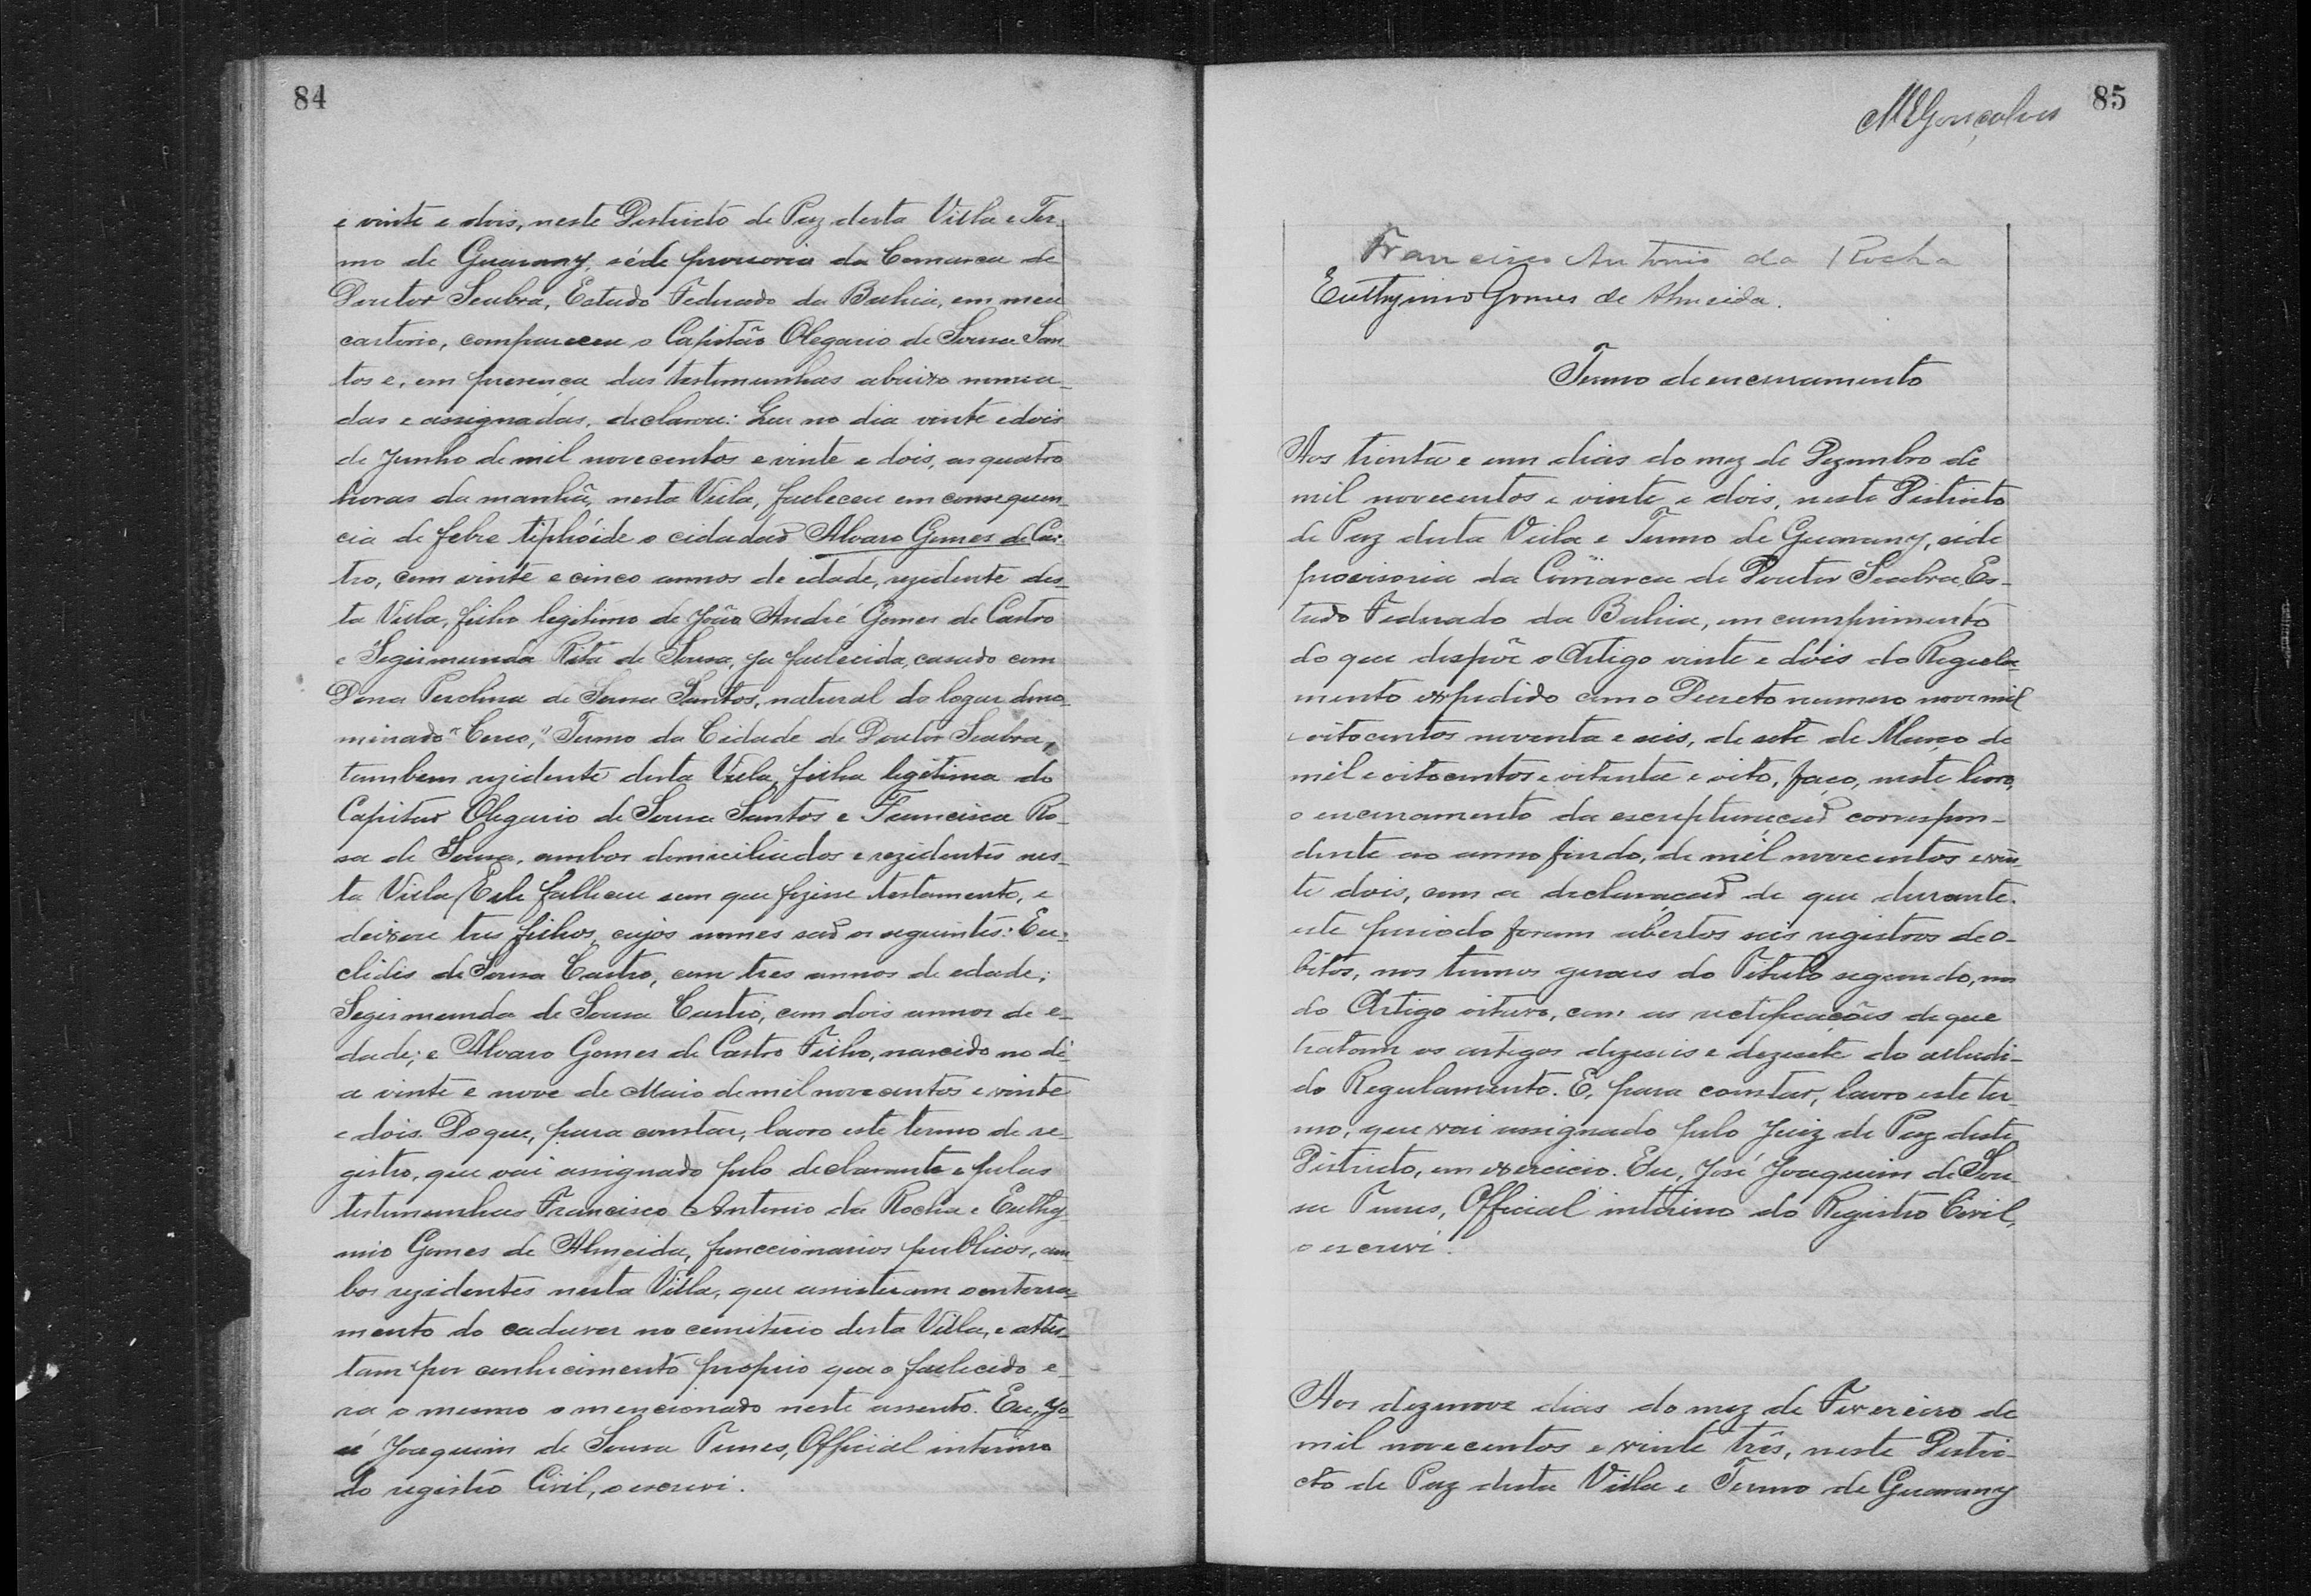 84
e vinte e dois, neste Districto de Paz desta Villa e Ter-
mo de Guarany, séde provisoria da Comarca de
Doutor Seabra, Estado Federado da Bahia, em meu
cartorio, compareceu o Capitão Olegario de Sousa San
tos e, em presença das testemunhas abaixo nomea-
das e assignadas, declarou: Que no dia vinte e dois
de Junho de mil novecentos e vinte e dois, as quatro
horas da manhã, nesta Villa, falleceu em consequen-
cia de febre tiphóide o cidadão Alvaro Gomes de Cas-
tro, com vinte e cinco annos de edade, rezidente des-
ta Villa, filho legitimo de João André Gomes de Castro
e Segismunda Rita de Sousa, ja fallecida, casado com
Dona de Sousa Santos, natural do logar deno-
minado "Cerco," Termo da Cidade de Doutor Seabra,
tambem rezidente desta Villa, filha legitima do
Capitão Olegario de Sousa Santos e Francisca Ro-
sa de Sousa, ambos domiciliados e rezidentes nes-
ta Villa. Este falleceu sem que fizesse testamento, e
deixou tres filhos, cujos nomes saõ os seguintes: Eu-
clides de Sousa Castro, com tres annos de edade;
Segismunda de Sousa Castro, com dois annos de e-
dade; e Alvaro Gomes de Castro Filho, nascido no di-
a vinte e nove de Maio de mil novecentos e vinte
e dois. Do que, para constar, lavro este termo de re-
gistro, que vai assignado pelo declarante e pelas
testemunhas Francisco Antonio da Rocha e Euthy-
mio Gomes de Almeida, funccionarios publicos, am-
bos rezidentes nesta Villa, que assisteram o enterra-
mento do cadaver no cemiterio desta Villa, e attes-
tam por conhecimento proprio que o fallecido e-
ra o mesmo o mencionado neste assento. Eu, Jo-
sé Joaquim de Sousa Tunes, Official interino
do registro Civil, o escrevi.
85
MEGonçalves
Francisco Antonio da Rocha
Euthymio Gomes de Almeida.
Termo de encerramento
Aos trinta e um dias do mez de Dezembro de
mil novecentos e vinte e dois, neste Districto
de Paz desta Villa e Termo de Guarany, séde
provisoria da Comarca de Doutor Seabra, Es-
tado Federado da Bahia, em cumprimento
do que dispõe o Artigo vinte e dois do Regula-
mento expedido com o Decreto numero nove mil
oitocentos noventa e seis, de sete de Março de
mil e oitocentos e oitenta e oito, faço, neste livro,
o encerramento da escripturaçaõ correspon-
dente ao anno findo, de mil novecentos e vin-
te dois, com a declaraçaõ de que durante
este periodo foram abertos seis registros de o-
bitos, nos termos geraes do Titulo segundo, no
do Artigo oitavo, com as rectificações de que
tratam os artigos dezeseis e dezesete do alludi-
do Regulamento. E, para constar, lavro este ter-
mo, que vai assignado pelo Juiz de Paz deste
Districto, em exercicio. Eu, José Joaquim de Sou-
sa Tunes, Official interino do Registro Civil,
o escrevi.
Aos dezenove dias do mez de Fevereiro de
mil novecentos e vinte três, neste Distri-
cto de Paz desta Villa e Termo de Guarany